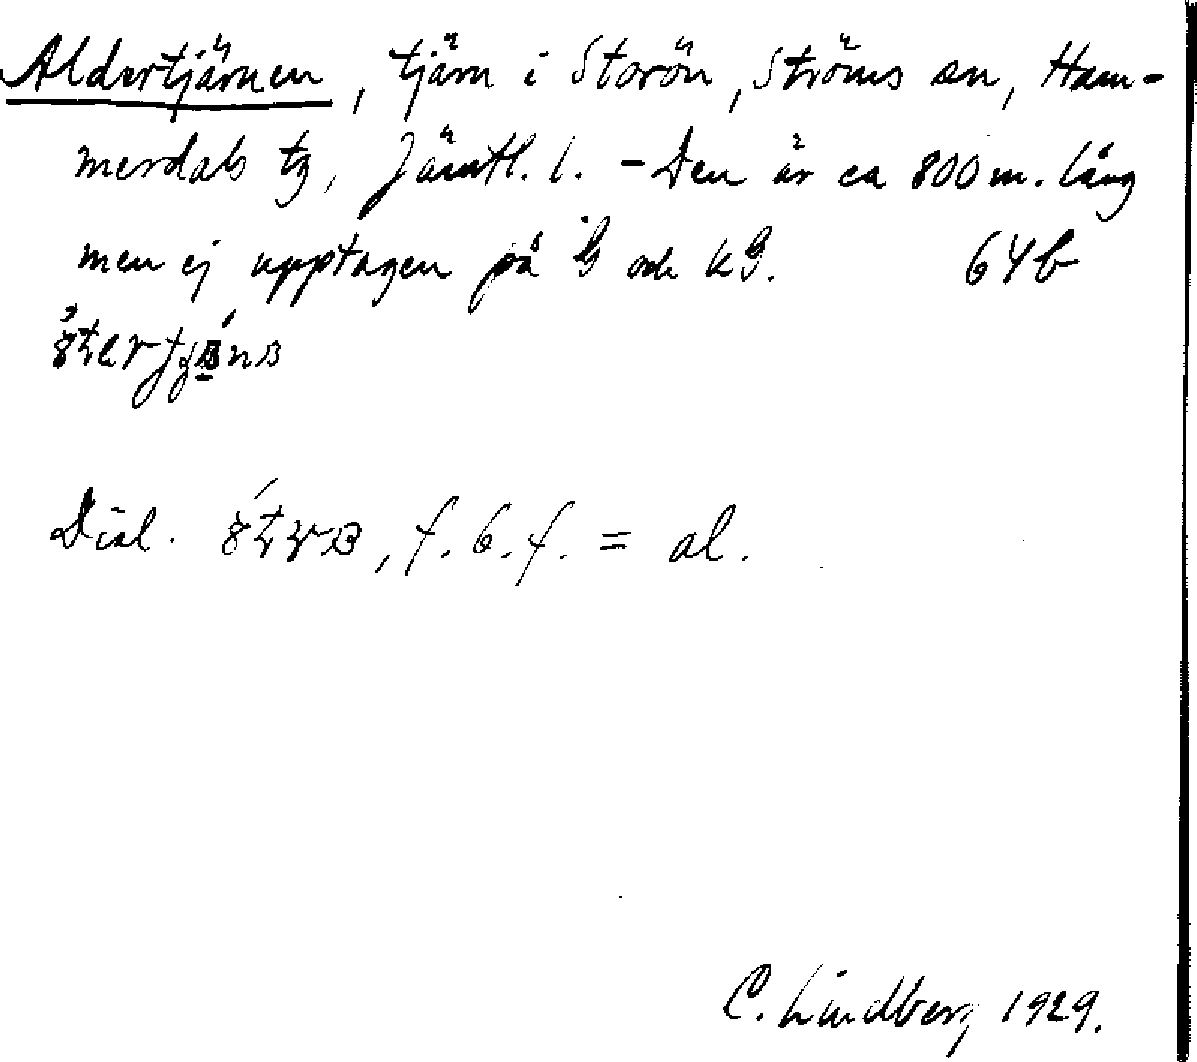 Aldertjärnen, tjärn i Storön, Ströms sn, Ham-
merdals tg, Jämtl. l. - Den är ca 800 m. lång
men ej upptagen på G och kG. 64b
Dial. , f. b. f. = al.
C. Lindberg 1929.